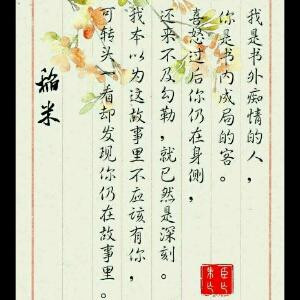 我是书外痴情的人，
你是书内成局的客。
喜怒过后你仍在身侧，
还来不及勾勒，就已然是深刻。
我本以为这故事里不应该有你，
可转头一看却发现你仍在故事里。
稻米